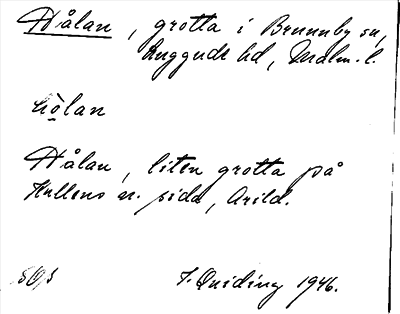 Hålan, grotta i Brunnby sn,
Luggude hd, Malm. l.
hòlan
Hålan, liten grotta på
Kullens n. sida, Arild.
1946.